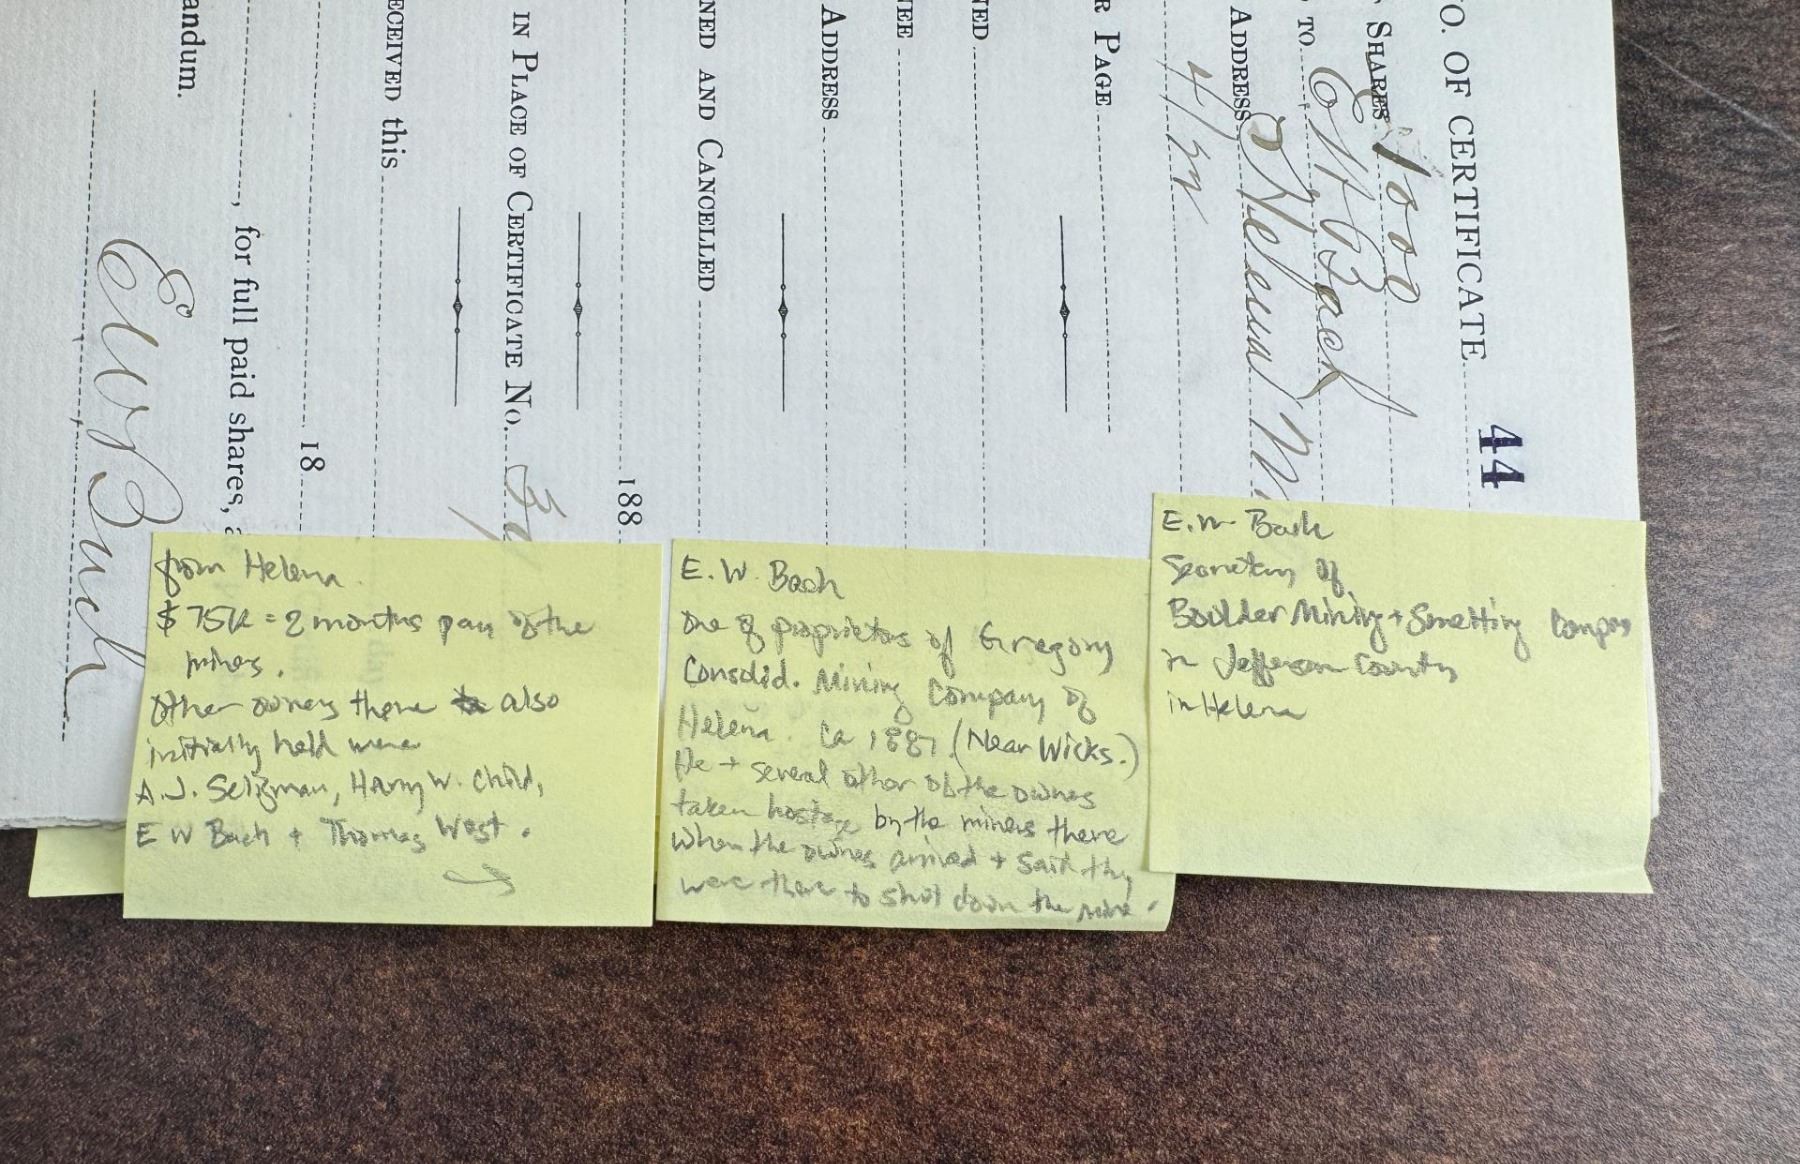 NO. OF CERTIFICATE 44
SHARES 1000
TO E W Bach
ADDRESS Helena M
4/
R PAGE
NED
NEE
ADDRESS
NED AND CANCELLED
188
IN PLACE OF CERTIFICATE NO.
ECEIVED this
18
, for full paid shares, a
andum.
E W Bach
from Helena.
$75K = 2 months pay of the
mines.
Other owners there also
initially held were
A.J. Seligman, Harry W. Child,
E W Bach + Thomas West.
→
E. W. Bach
One of proprietors of Gregory
Consolid. Mining Company of
Helena. Ca 1887 (Near Wicks.)
He + several other of the owners
taken hostage by the miners there
when the owners arrived + said they
were there to shut down the mine.
E. W. Bach
Secretary of
Boulder Mining + Smelting Company
in Jefferson County
in Helena